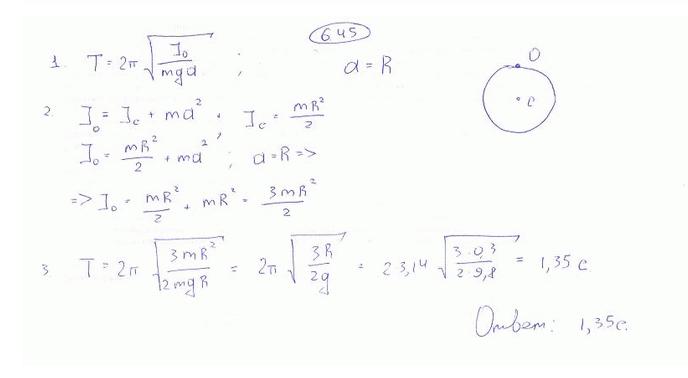 645
1. T = 2π √(J₀/mga) ; a = R
O
C
2. J₀ = J_c + ma², J_c = mR²/2
J₀ = mR²/2 + ma² ; a = R =>
=> J₀ = mR²/2 + mR² = 3mR²/2
3. T = 2π √(3mR²/2mgR) = 2π √(3R/2g) = 2·3,14 √(3·0,3/2·9,8) = 1,35 с
Ответ: 1,35с.